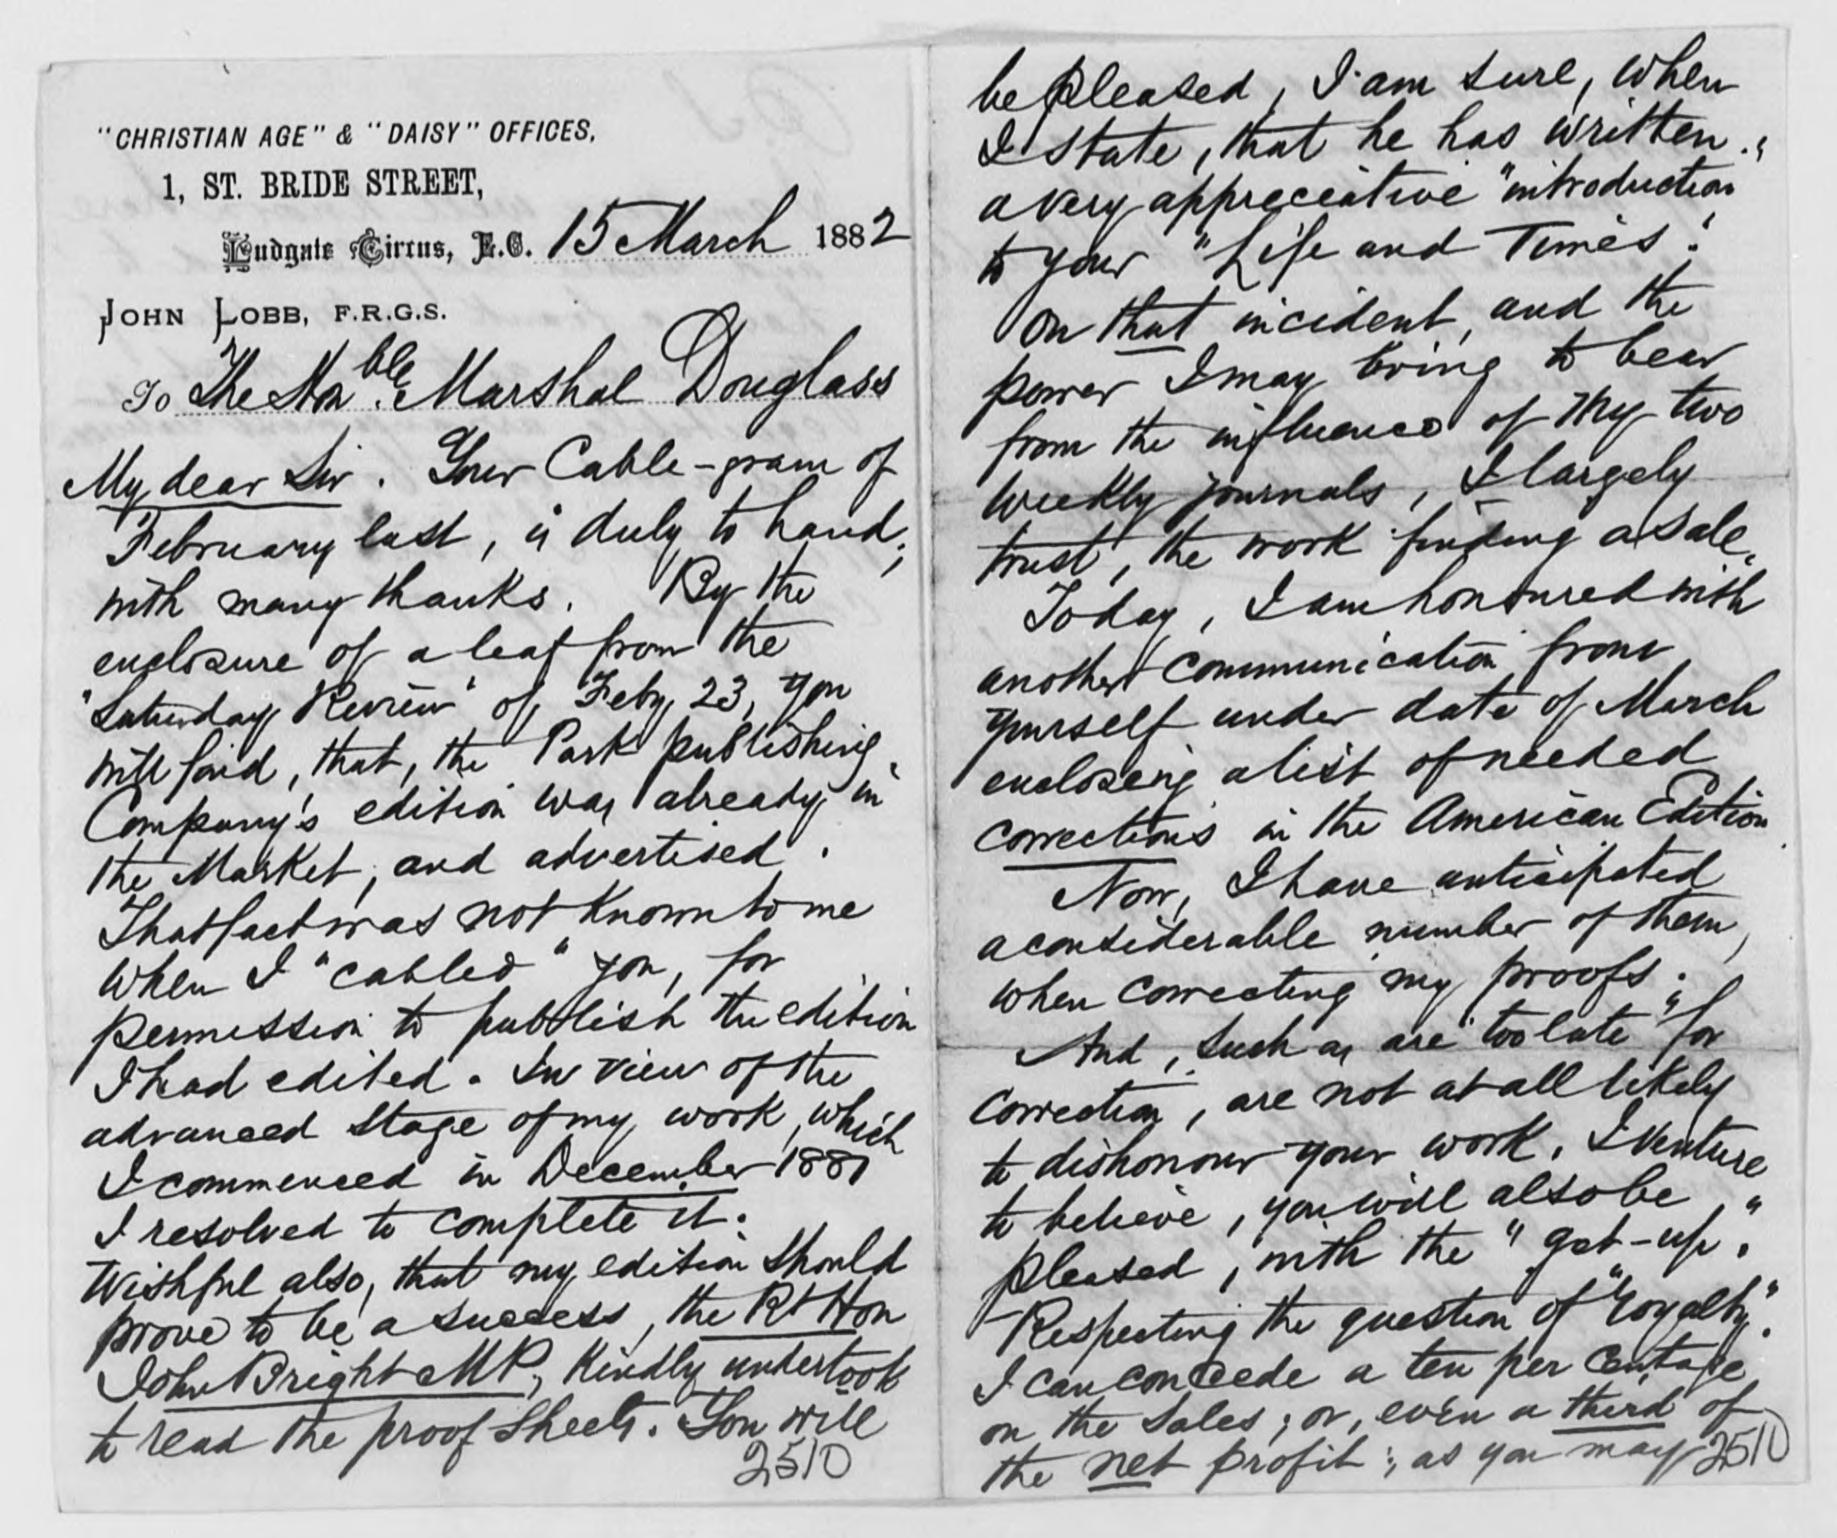 "CHRISTIAN AGE" & "DAISY" OFFICES,
1, ST. BRIDE STREET,
Ludgate Circus, E.C. 15 March 1882
JOHN LOBB, F.R.G.S.
To The Honble. Marshal Douglass
My dear Sir. Your Cable-gram of
February last, is duly to hand;
with many thanks. By the
enclosure of a leaf from the
"Saturday Review" of Feby 23, you
will find, that, the Park publishing
Company's edition was already in
the Market, and advertised.
That fact was not known to me
when I "cabled" you, for
permission to publish the edition
I had edited. In view of the
advanced stage of my work, which
I commenced in December 1881
I resolved to complete it.
Wishful also, that my edition should
prove to be a success, the Rt Hon
John Bright MP, kindly undertook
to read the proof sheets. You will
2510
be pleased, I am sure, when
I state, that he has written
a very appreciative "introduction"
to your "Life and Times".
On that incident, and the
power I may bring to bear
from the influence of my two
weekly journals, I largely
trust, the work finding a sale.
Today, I am honoured with
another communication from
yourself under date of March
enclosing a list of needed
corrections in the American Edition
Now, I have anticipated
a considerable number of them,
when correcting my proofs.
And, such as are "too late" for
correction, are not at all likely
to dishonour your work. I venture
to believe, you will also be
pleased, with the "get-up".
Respecting the question of "royalty".
I can concede a ten per centage
on the sales; or, even a third of
the net profit; as you may
2510